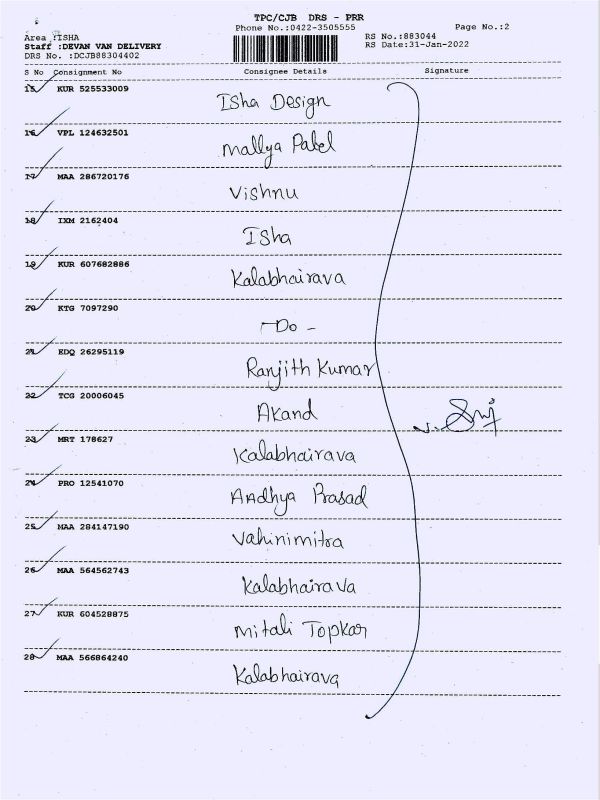 TPC/CJB DRS - PRR
Phone No.:0422-3505555
Page No.:2
Area :ISHA
RS No.:883044
Staff :DEVAN VAN DELIVERY
RS Date:31-Jan-2022
DRS No. :DCJB88304402
S No Consignment No Consignee Details Signature
15 KUR 525533009
Isha Design
16 VPL 124632501
Mallya Patel
17 MAA 286720176
Vishnu
18 IXM 2162404
Isha
19 KUR 607682886
Kalabhairava
20 KTG 7097290
-Do-
21 EDQ 26295119
Ranjith Kumar
22 TCG 20006045
Akand
23 MRT 178627
Kalabhairava
24 PRO 12541070
Andhya Prasad
25 MAA 284147190
Vahinimitra
26 MAA 564562743
Kalabhairava
27 KUR 604528875
Mitali Topkar
28 MAA 566864240
Kalabhairava